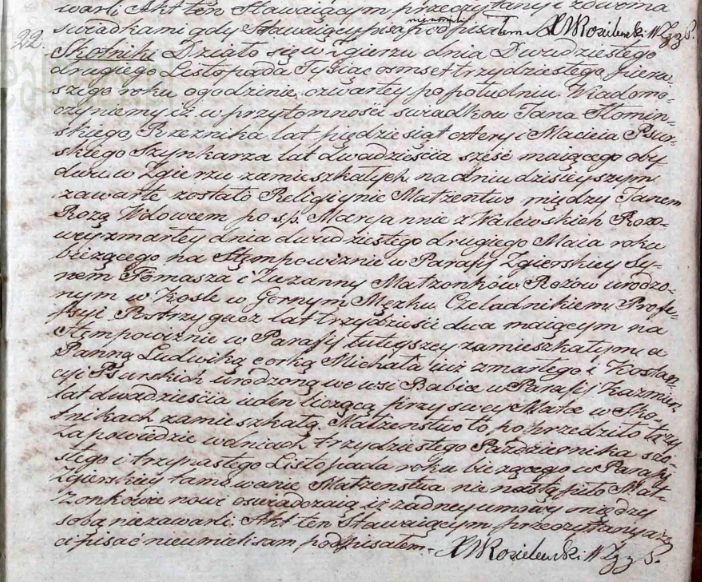 warli Akt ten Stawaiącym przeczytany i zowma
świadkami gdy Stawaiący pisać nieumieli podpisałem XWKosilewski
22. Skotniki Działo się w Zgierzu dnia Dwudziestego
drugiego Listopada Tysiąc osmset trzydziestego pierw-
szego roku o godzinie czwartey po południu Wiadomo
czyniemy iż w przytomności świadków Jana Słomin-
skiego, Rzeznika lat pięćdziesiąt cztery i Macieia Psur-
skiego Szynkarza lat dwadzieścia sześć maiącego oby
dwu w Zgierzu zamieszkałych na dniu dzisieyszym
zawarte zostało Religiynie Małżeństwo między Janem
Rozą Wdowcem po sp. Maryannie z Walewskich Rozo-
wey zmarłey dnia dwudziestego drugiego Maia roku
bieżącego na Stempowiźnie w Parafij Zgierskiey Sy-
nem Tomasza i Zuzanny Małżonków Rozów urodzo-
nym w Kosle w Gornym Czeladnikiem Profe-
ssyi Postrzygacz lat trzydzieści dwa maiącym na
Stempowiźnie w Parafij tuteyszey zamieszkałym; a
Panną Ludwiką corką Michała iuż zmarłego i Kostan-
cyi Psurskich urodzoną we wsi Babice w Parafij Kazmierz
lat dwadzieścia ieden liczącą przy swey Matce w Sko-
tnikach zamieszkałą. Małżeństwo to poprzedziły trzy
Zapowiedzie w dniach trzydziestego Pazdziernika szó-
stego i trzynastego Listopada roku bieżącego w Parafij
Zgierskiey tamowanie Małżeństwa nie nastąpiło Mał-
żonkowie nowi oswiadczaią iż żadney umowy między
sobą niezawarli. Akt ten Stawaiącym przeczytany a iż
ci pisać nieumieli sam podpisałem. XWKosilewski